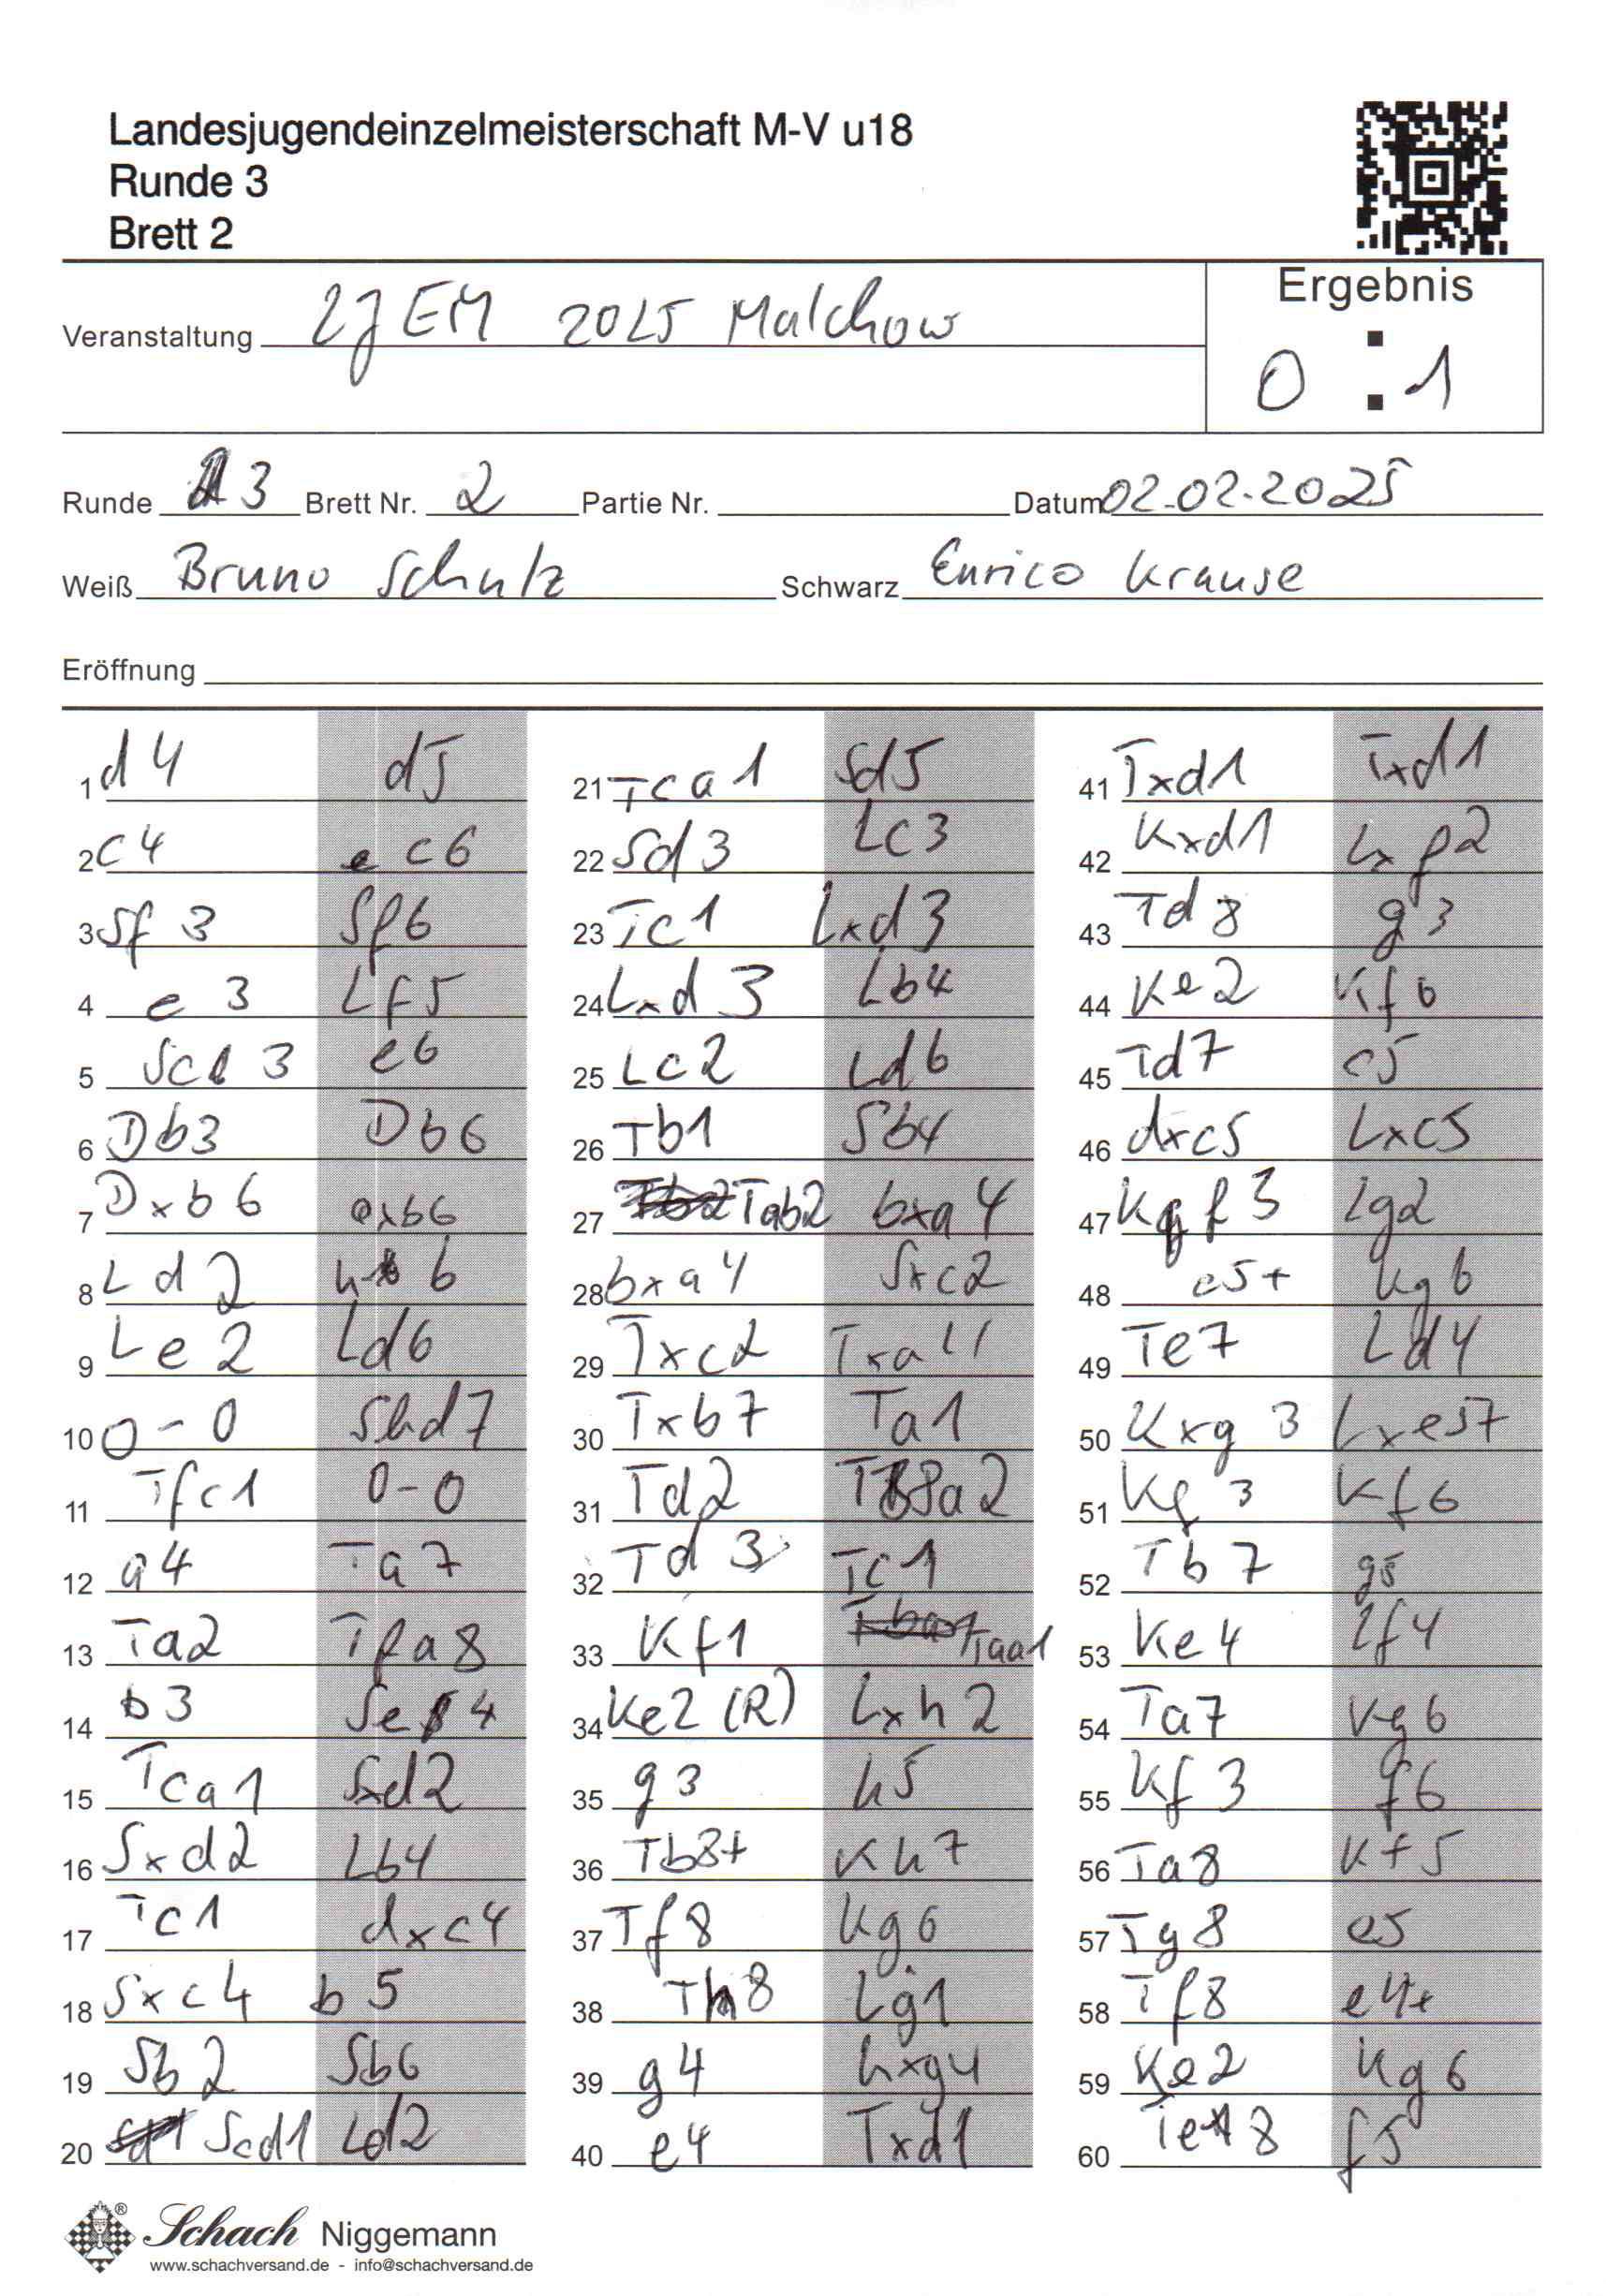 Landesjugendeinzelmeisterschaft M-V u18
Runde 3
Brett 2
Ergebnis
Veranstaltung LJEM 2025 Malchow
0 : 1
Runde 3 Brett Nr. 2 Partie Nr. Datum 02.02.2025
Weiß Bruno Schulz Schwarz Enrico Krause
Eröffnung
1 d4 d5
2 c4 c6
3 Sf3 Sf6
4 e3 Lf5
5 Sc3 e6
6 Db3 Db6
7 Dxb6 axb6
8 Ld2 h6
9 Le2 Ld6
10 0-0 Sbd7
11 Tfc1 0-0
12 a4 Ta7
13 Ta2 Tfa8
14 b3 Se4
15 Tca1 Sxd2
16 Sxd2 Lb4
17 Tc1 dxc4
18 Sxc4 b5
19 Sb2 Sb6
20 Scd1 Ld2
21 Tca1 Sd5
22 Sd3 Lc3
23 Tc1 Lxd3
24 Lxd3 Lb4
25 Lc2 Ld6
26 Tb1 Sb4
27 Tab2 bxa4
28 bxa4 Sxc2
29 Txc2 Txa4
30 Txb7 Ta1
31 Td2 T8a2
32 Td3 Tc1
33 Kf1 Taa1
34 Ke2 (R) Lxh2
35 g3 h5
36 Tb8+ Kh7
37 Tf8 Kg6
38 Th8 Lg1
39 g4 hxg4
40 e4 Txd1
41 Txd1 Txd1
42 Kxd1 Lxf2
43 Td8 g3
44 Ke2 Kf6
45 Td7 c5
46 dxc5 Lxc5
47 Kf3 Lg2
48 e5+ Kg6
49 Te7 Ld4
50 Kxg3 Lxe5+
51 Kf3 Kf6
52 Tb7 g5
53 Ke4 Lf4
54 Ta7 Kg6
55 Kf3 f6
56 Ta8 Kf5
57 Tg8 e5
58 Tf8 e4+
59 Ke2 Kg6
60 Te8 f5
Schach Niggemann
www.schachversand.de - info@schachversand.de